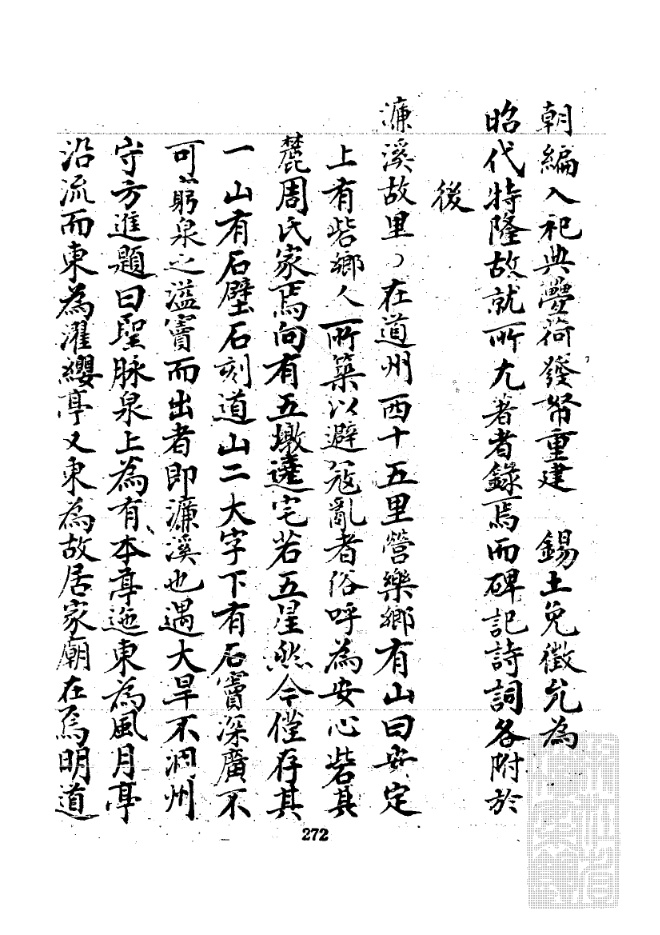 朝編入祀典疊荷發帑重建　錫土免徵允為
昭代特隆故就所尤著者錄焉而碑記詩詞各附於
後
濂溪故里、在道州西十五里營樂鄉有山曰安定
上有砦鄉人所築以避寇亂者俗呼為安心砦其
麓周氏家焉向有五墩遶宅若五星然今僅存其
一山有石壁石刻道山二大字下有石竇深廣不
可窮泉之溢竇而出者即濂溪也遇大旱不涸州
守方進題曰聖脉泉上為有本亭迤東為風月亭
沿流而東為濯纓亭又東為故居家廟在焉明道
272